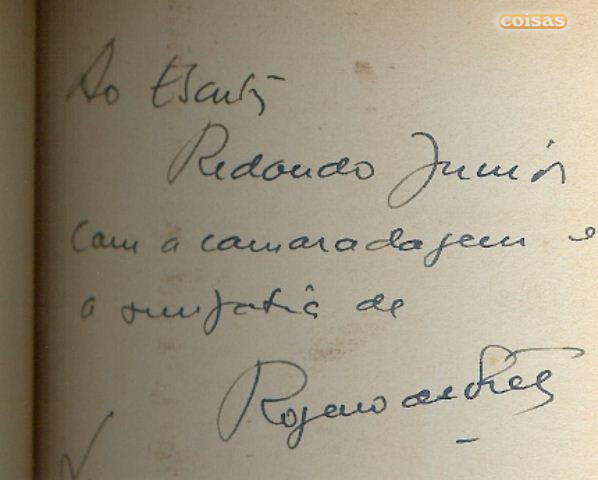 coisas
Ao Escritor
Redondo Junior
com a camaradagem e
a simpatia de
Rogério de Freitas